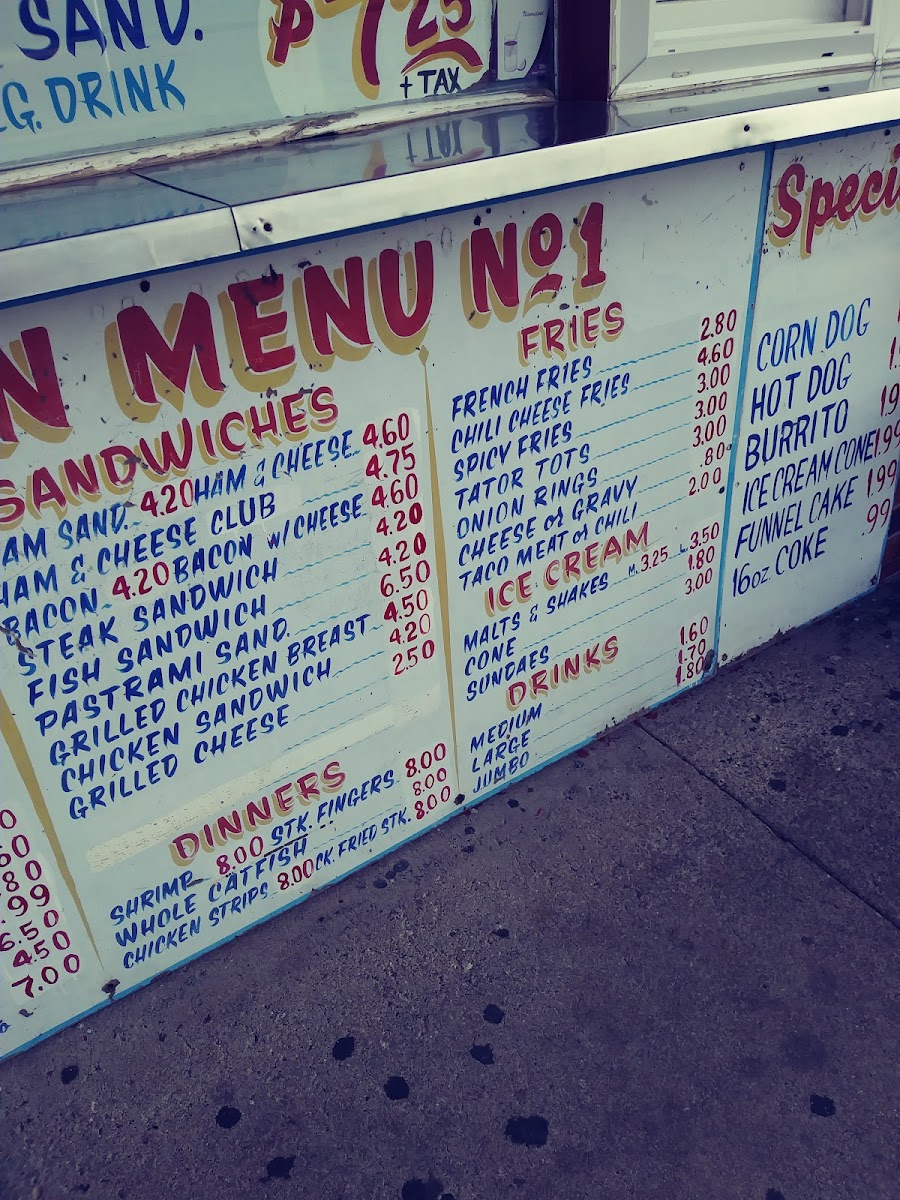 SAND.
G. DRINK
$7.25
+ TAX
N MENU No 1
SANDWICHES
AM SAND. 4.20 HAM & CHEESE 4.60
HAM & CHEESE CLUB 4.75
BACON 4.20 BACON w/CHEESE 4.60
STEAK SANDWICH 4.20
FISH SANDWICH 4.20
PASTRAMI SAND. 6.50
GRILLED CHICKEN BREAST 4.50
CHICKEN SANDWICH 4.20
GRILLED CHEESE 2.50
DINNERS
SHRIMP 8.00 STK. FINGERS 8.00
WHOLE CATFISH 8.00
CHICKEN STRIPS 8.00 CK. FRIED STK. 8.00
FRIES
FRENCH FRIES 2.80
CHILI CHEESE FRIES 4.60
SPICY FRIES 3.00
TATOR TOTS 3.00
ONION RINGS 3.00
CHEESE or GRAVY .80
TACO MEAT or CHILI 2.00
ICE CREAM
MALTS & SHAKES M. 3.25 L. 3.50
CONE 1.80
SUNDAES 3.00
DRINKS
MEDIUM 1.60
LARGE 1.70
JUMBO 1.80
Speci
CORN DOG
HOT DOG
BURRITO
ICE CREAM CONE 1.99
FUNNEL CAKE 1.99
16oz. COKE .99
0
60
80
.99
6.50
4.50
7.00